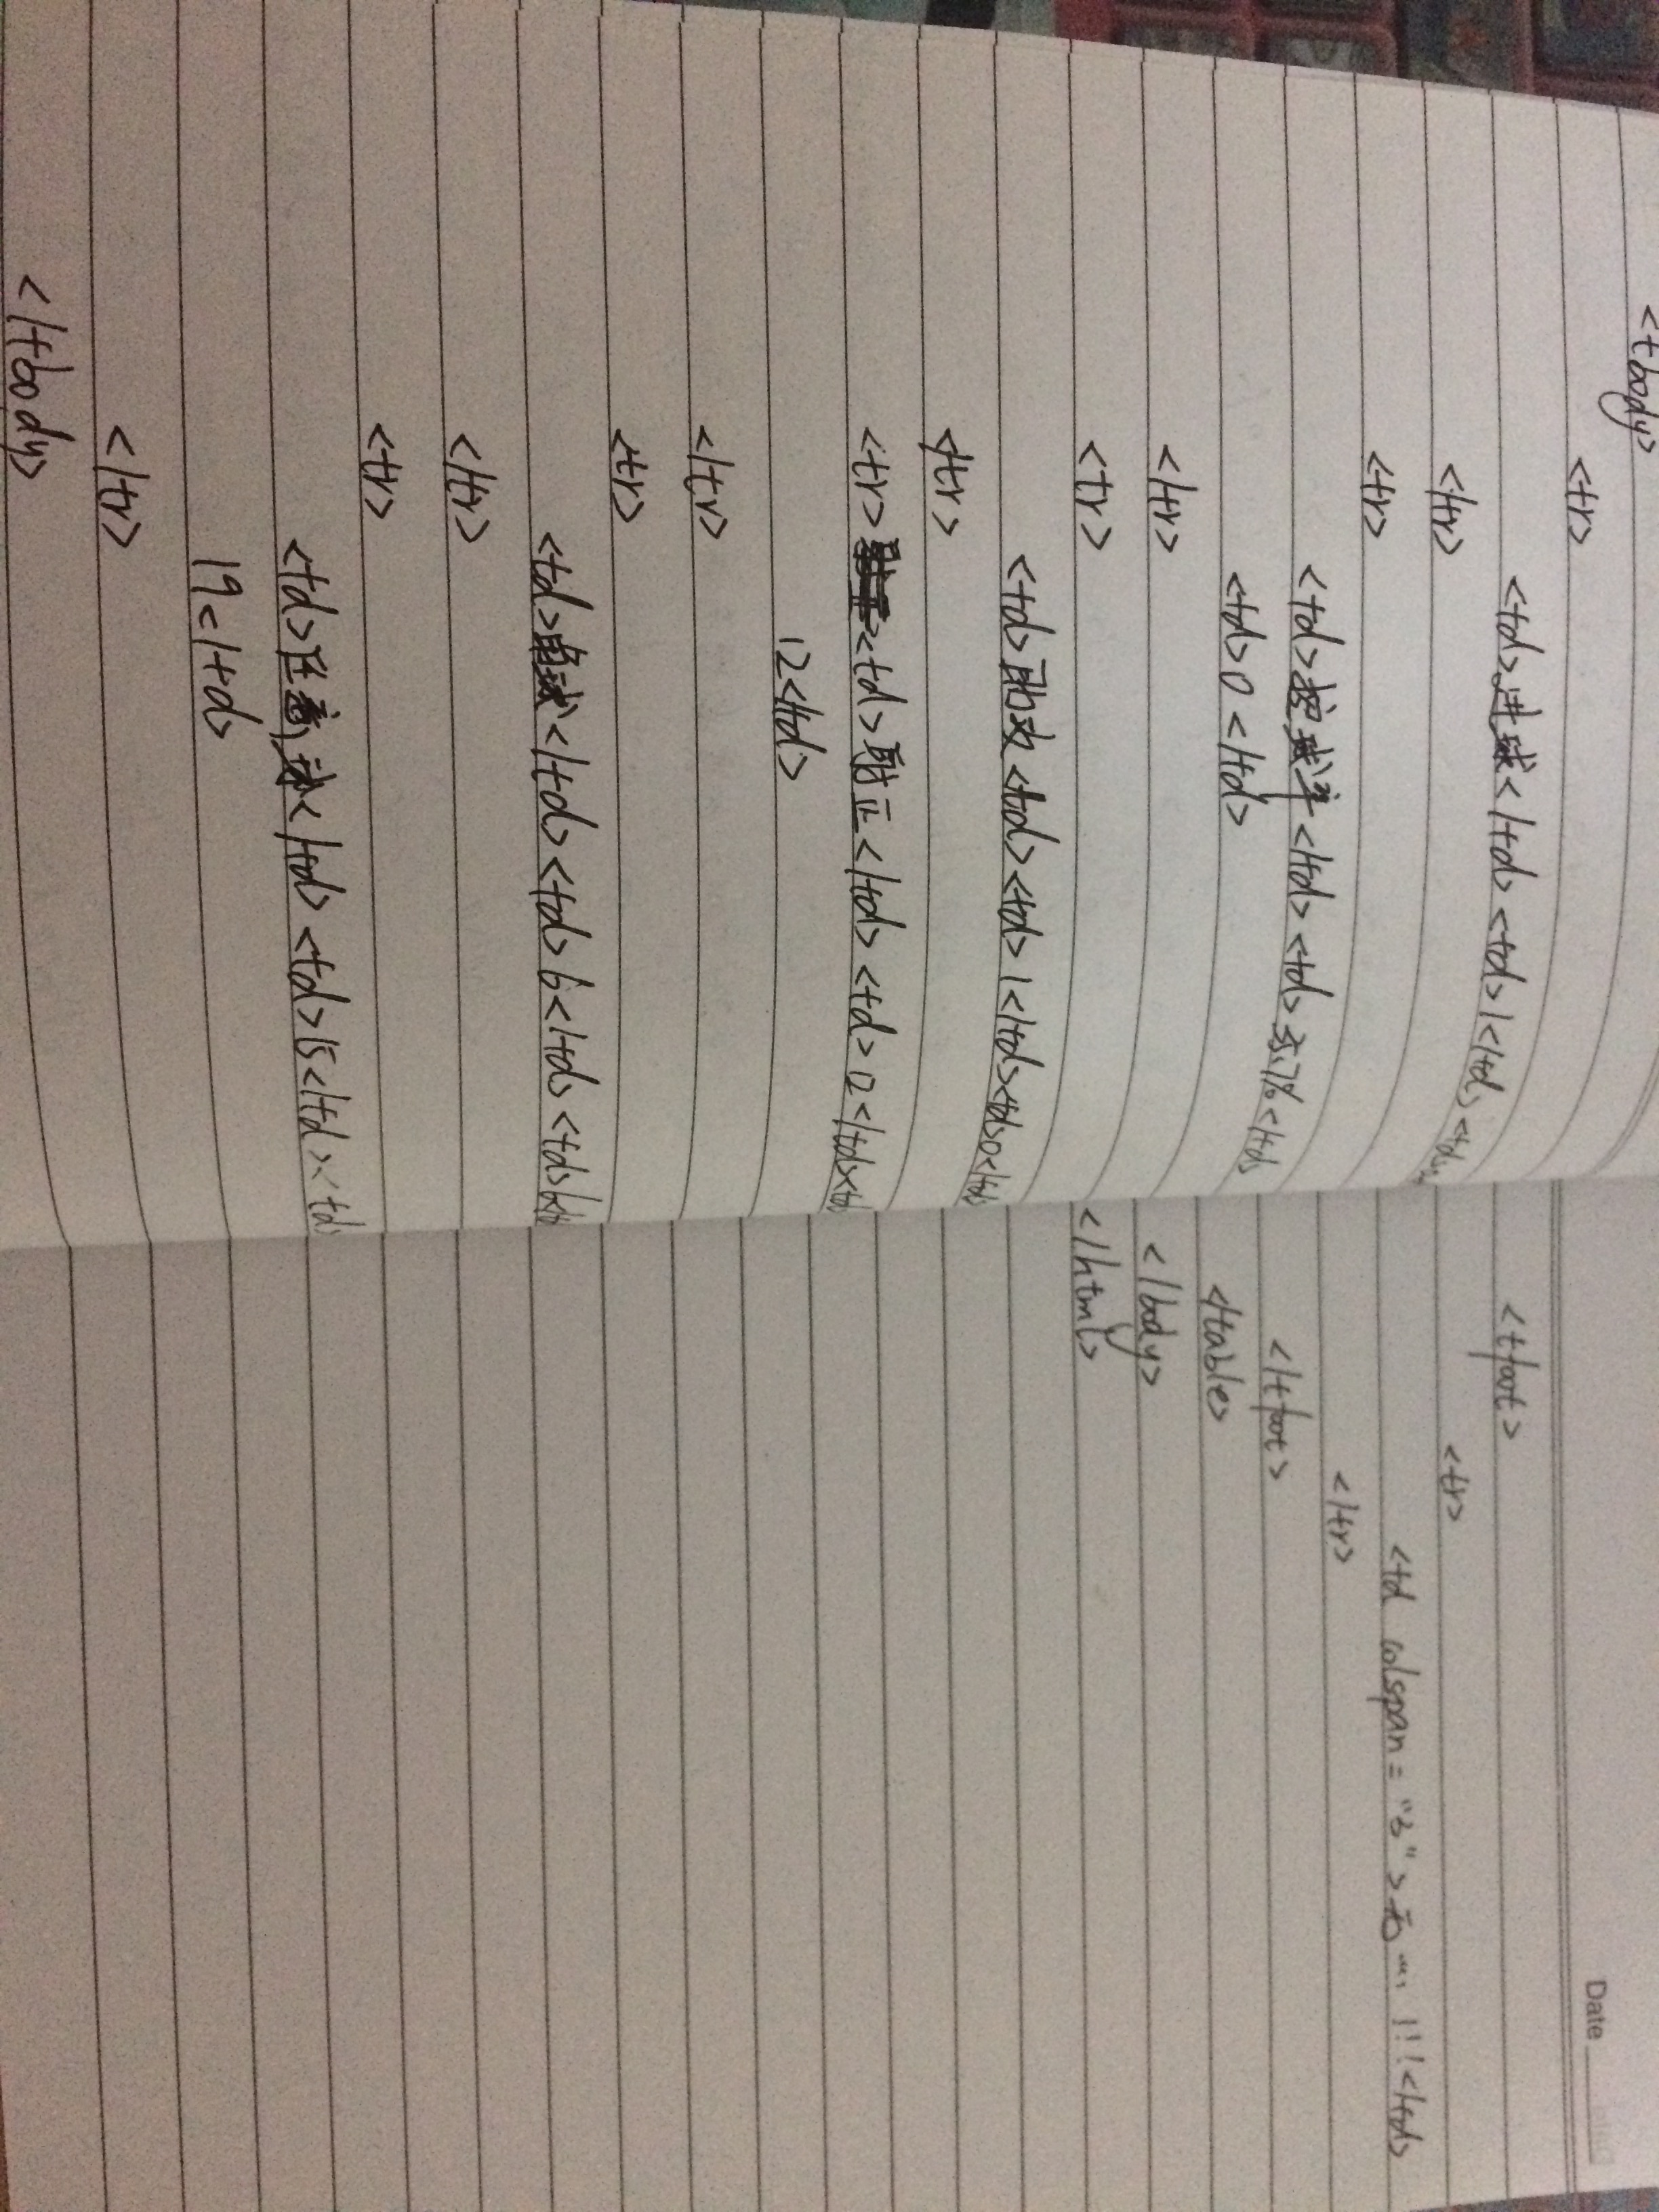 <tbody>
<tr>
<td>进球</td><td>1</td><td>
</tr>
<tr>
<td>控球率</td><td>
<td>0</td>
</tr>
<tr>
<td>助攻<td><td>1</td><td>0</td>
</tr>
<tr><td>射正</td><td>12</td><td>
12</td>
</tr>
<tr>
<td>角球</td><td>6</td><td>
</tr>
<tr>
<td>任意球</td><td>15</td><td>
19</td>
</tr>
</tbody>
Date
<tfoot>
<tr>
<td colspan="3"> !!!</td>
</tr>
</tfoot>
</table>
</body>
</html>